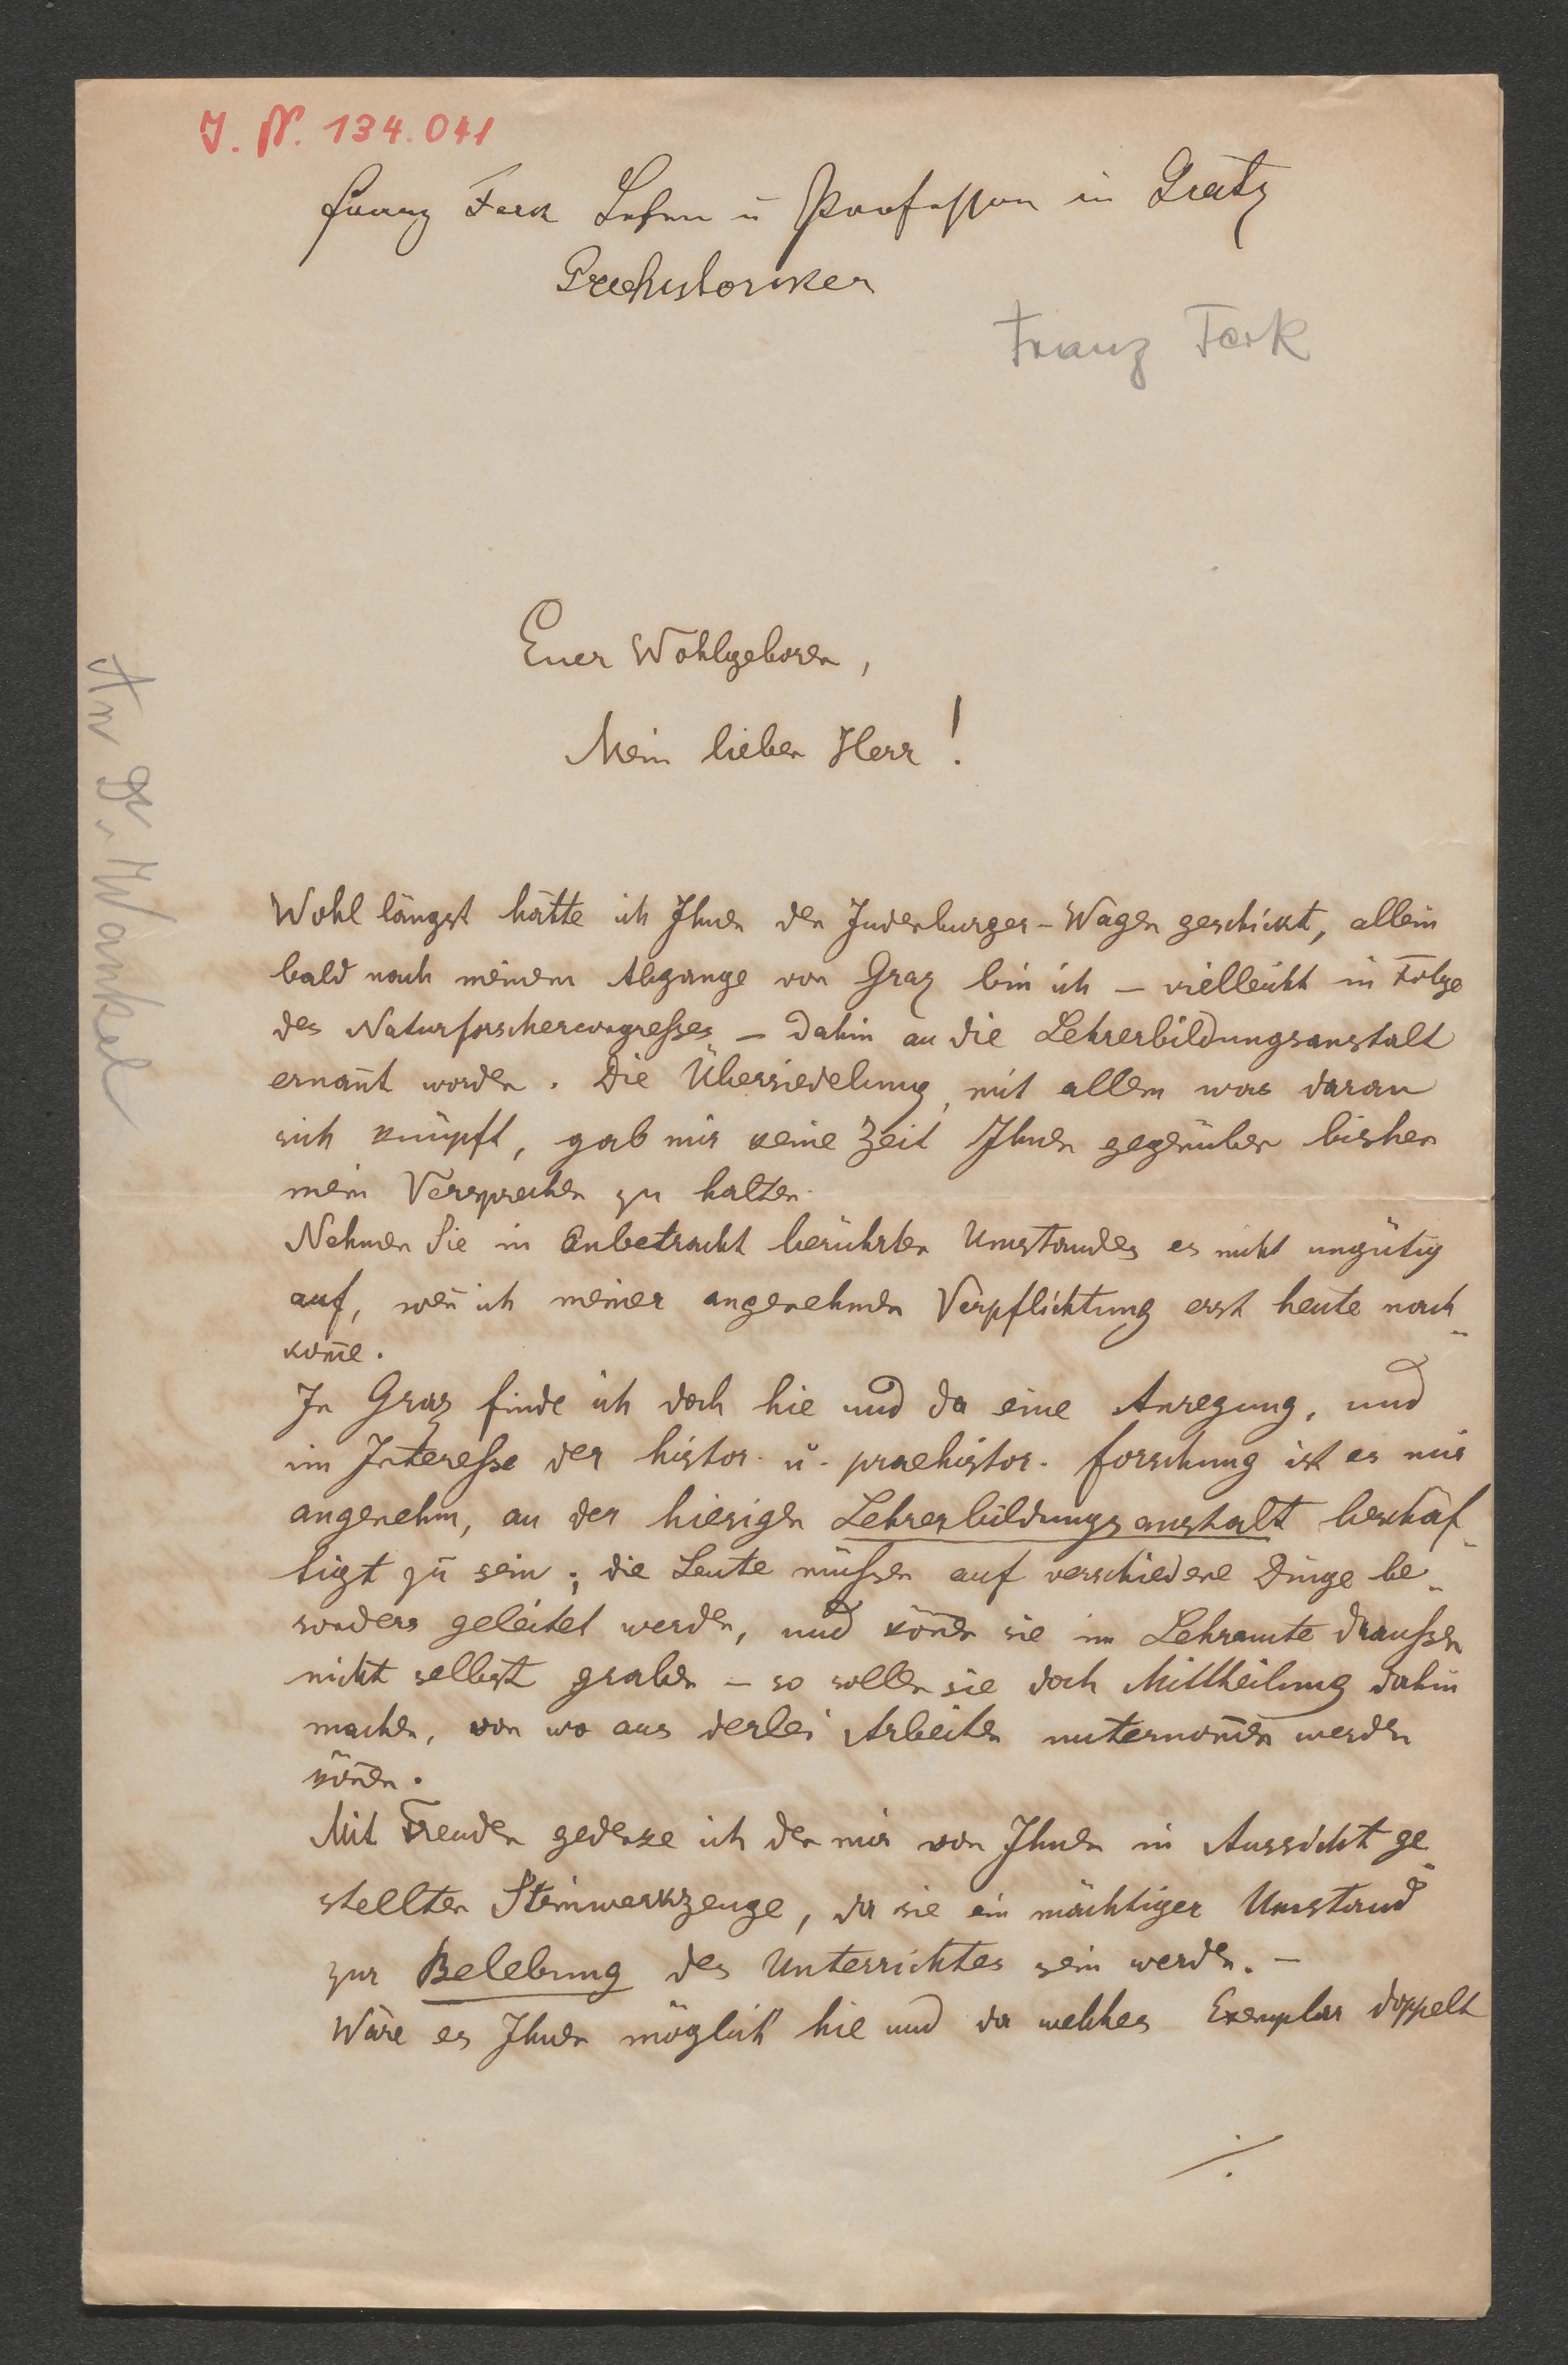 J. N. 134.041
Franz Ferk Lehrer u Professor in Gratz
Praehistoriker
Franz Ferk
An Dr. Wankel
Euer Wohlgeboren,
Mein lieber Herr!
Wohl längst hätte ich Ihnen den Judenburger-Wagen geschickt, allein
bald nach meinem Abgange von Graz bin ich – vielleicht in Folge
des Naturforschercongreßes – dahin an die Lehrerbildungsanstalt
ernan̄t worden. Die Übersiedelung, mit allem was daran
sich knüpft, gab mir keine Zeit Ihnen gegenüber bisher
mein Versprechen zu halten.
Nehmen Sie in Anbetracht berührten Umstandes es nicht ungütig
auf, wen̄ ich meiner angenehmen Verpflichtung erst heute nach-
kom̄e.
In Graz finde ich doch hie und da eine Anregung, und
im Intereße der histor. u. praehistor. Forschung ist es mir
angenehm, an der hiesigen Lehrerbildungsanstalt beschäf-
tigt zu sein; die Leute müßen auf verschiedene Dinge be-
sonders geleitet werden, und kön̄en sie im Lehramte draußen
nicht selbst graben – so sollen sie doch Mittheilung dahin
machen, von wo aus derlei Arbeiten unternom̄en werden
kön̄en.
Mit Freuden gedenke ich der mir von Ihnen in Aussicht ge-
stellten Steinwerkzeuge, da sie ein mächtiger Umstand
zur Belebung des Unterrichtes sein werden. –
Wäre es Ihnen möglich hie und da welches Exemplar doppelt
./.